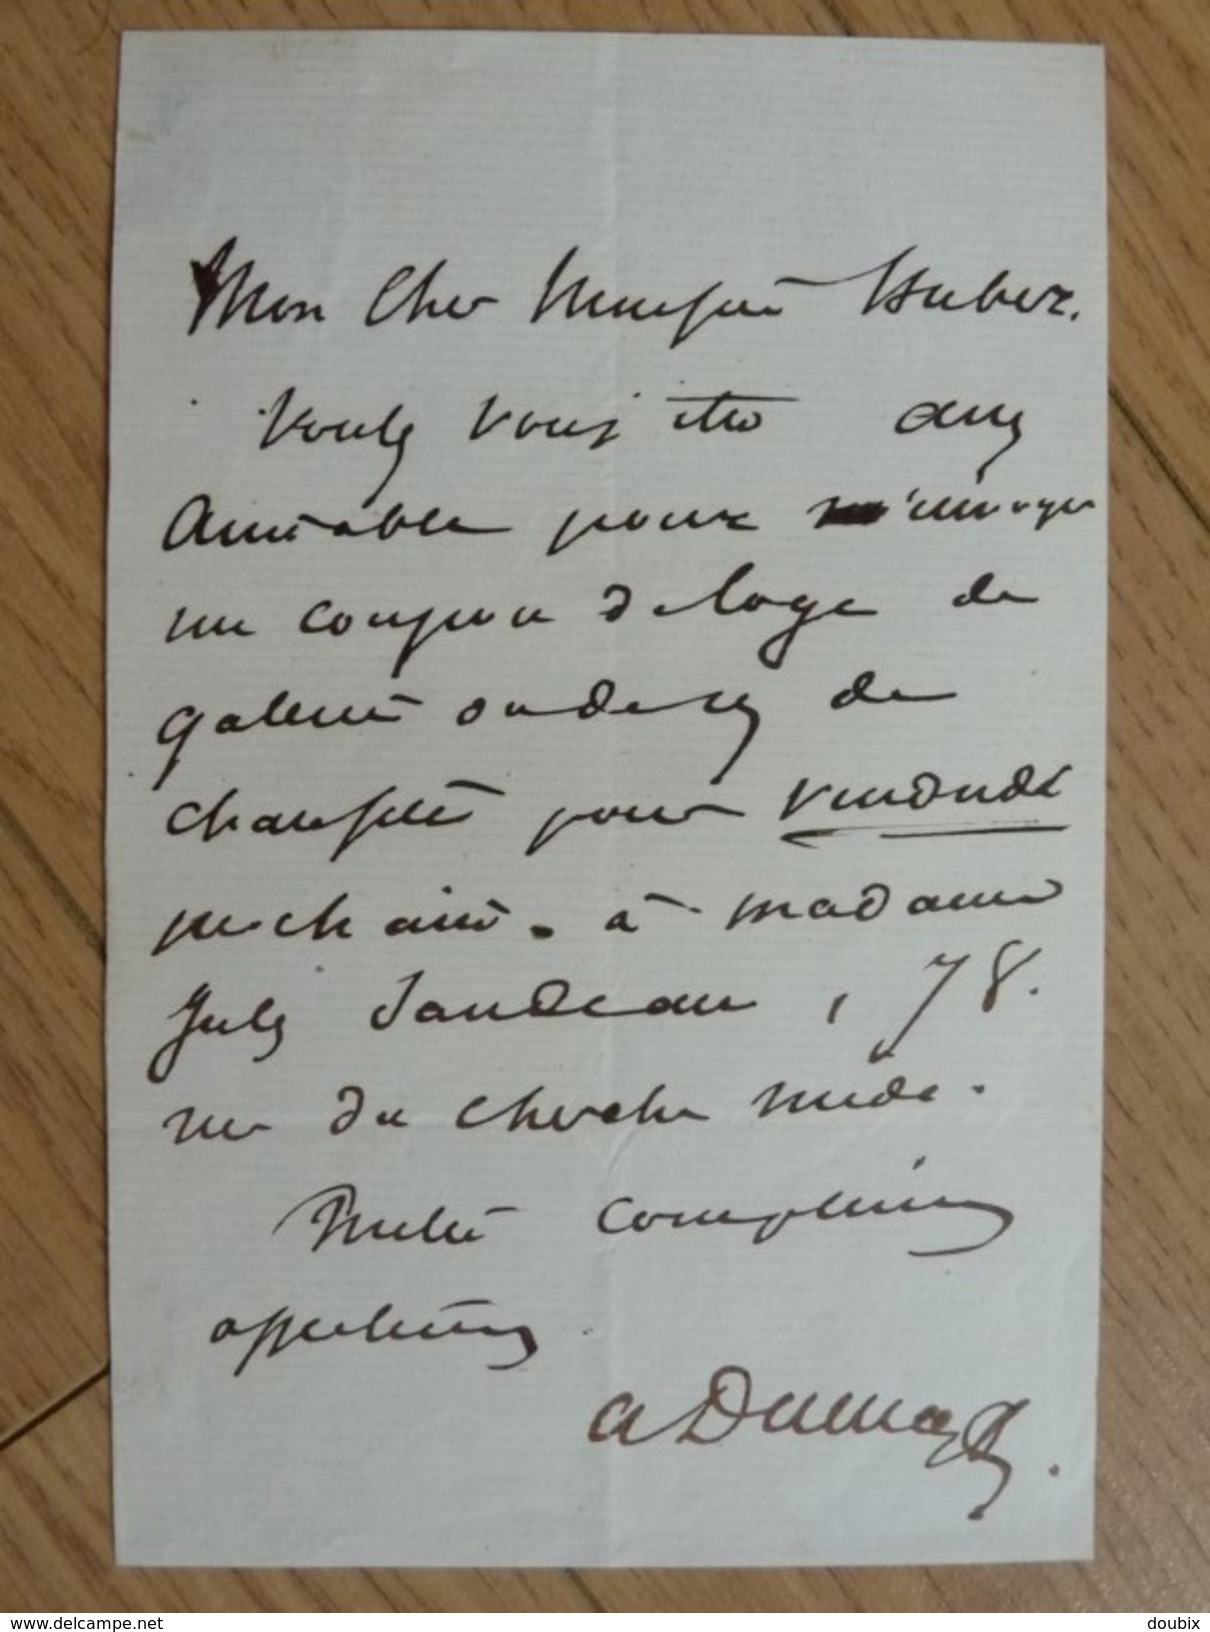 Mon Cher Monsieur Huber.
Voulez vous être assez
aimable pour m'envoyer
un coupon de loge de
galerie ou de rez de
chaussée pour vendredi
prochain. à madame
Jules Sandeau, 78.
rue du cherche midi.
Mille compliments
affectueux
A Dumas f.
www.delcampe.net
doubix